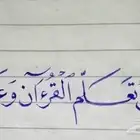 تعلم القرءان وع